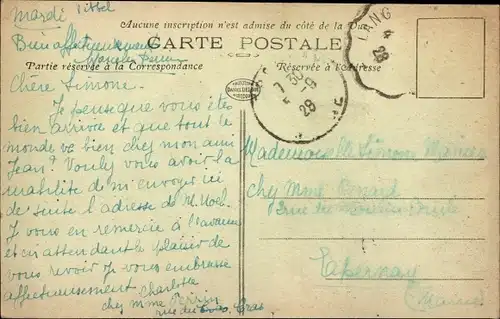 Mardi
Aucune inscription n'est admise du côté de la Vue
Bien affectueusement
CARTE POSTALE
Partie réservée à la Correspondance
Réservée à l'Adresse
ANG
4
28
7 30
5-9
28
Chère Simone.
Je pense que vous êtes
bien arrivée et que tout le
monde va bien chez mon ami
Jean? Voulez vous avoir la
mabilité de m'envoyer ici
de suite l'adresse de M. Noel.
Je vous en remercie à l'avance
et en attendant le plaisir de
vous revoir je vous embrasse
affectueusement Charlotte
chez Mme
rue du Gras
Mademoiselle Simone
chez Mme
rue du
Epernay
(Marne)